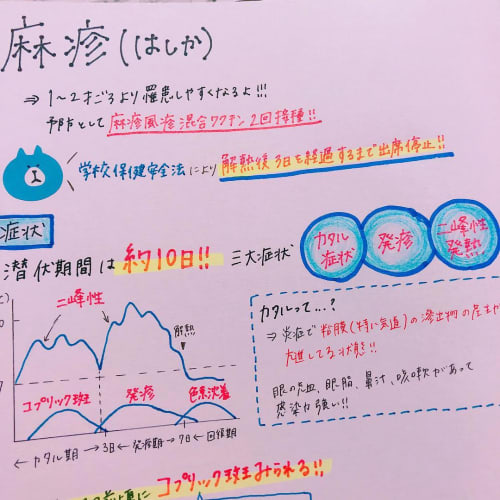 麻疹(はしか)
⇒ 1〜2才ごろより罹患しやすくなるよ!!!
予防として麻疹風疹混合ワクチン2回接種!!
学校保健安全法により解熱後3日を経過するまで出席停止!!
症状
潜伏期間は約10日!! 三大症状
カタル症状
発疹
二峰性発熱
℃)
二峰性
解熱
コプリック斑
発疹
色素沈着
← カタル期 → 3日 ← 発疹期 → 7日 ← 回復期
カタルって…?
⇒ 炎症で粘膜(特に気道)の滲出物の産生が
亢進してる状態!!
眼の充血、眼脂、鼻汁、咳嗽があって
感染力強い!!
コプリック斑みられる!!